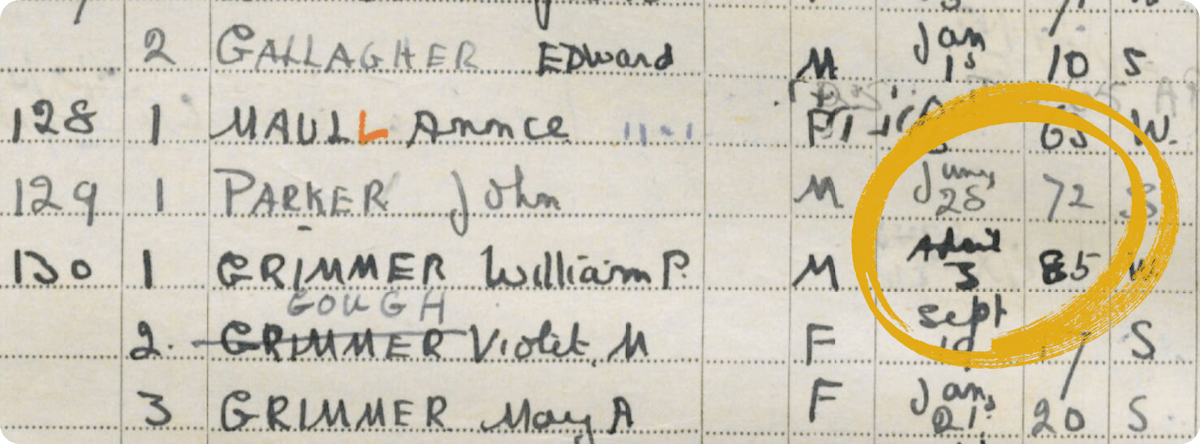 2 GALLAGHER Edward M Jan 15 10 S
128 1 MAULL Annce F 65 W.
129 1 PARKER John M June 28 72 S
130 1 GRIMMER William P. M April 3 85 W
GOUGH
2. GRIMMER Violet M F Sept S
3 GRIMMER May A F Jan 21 20 S